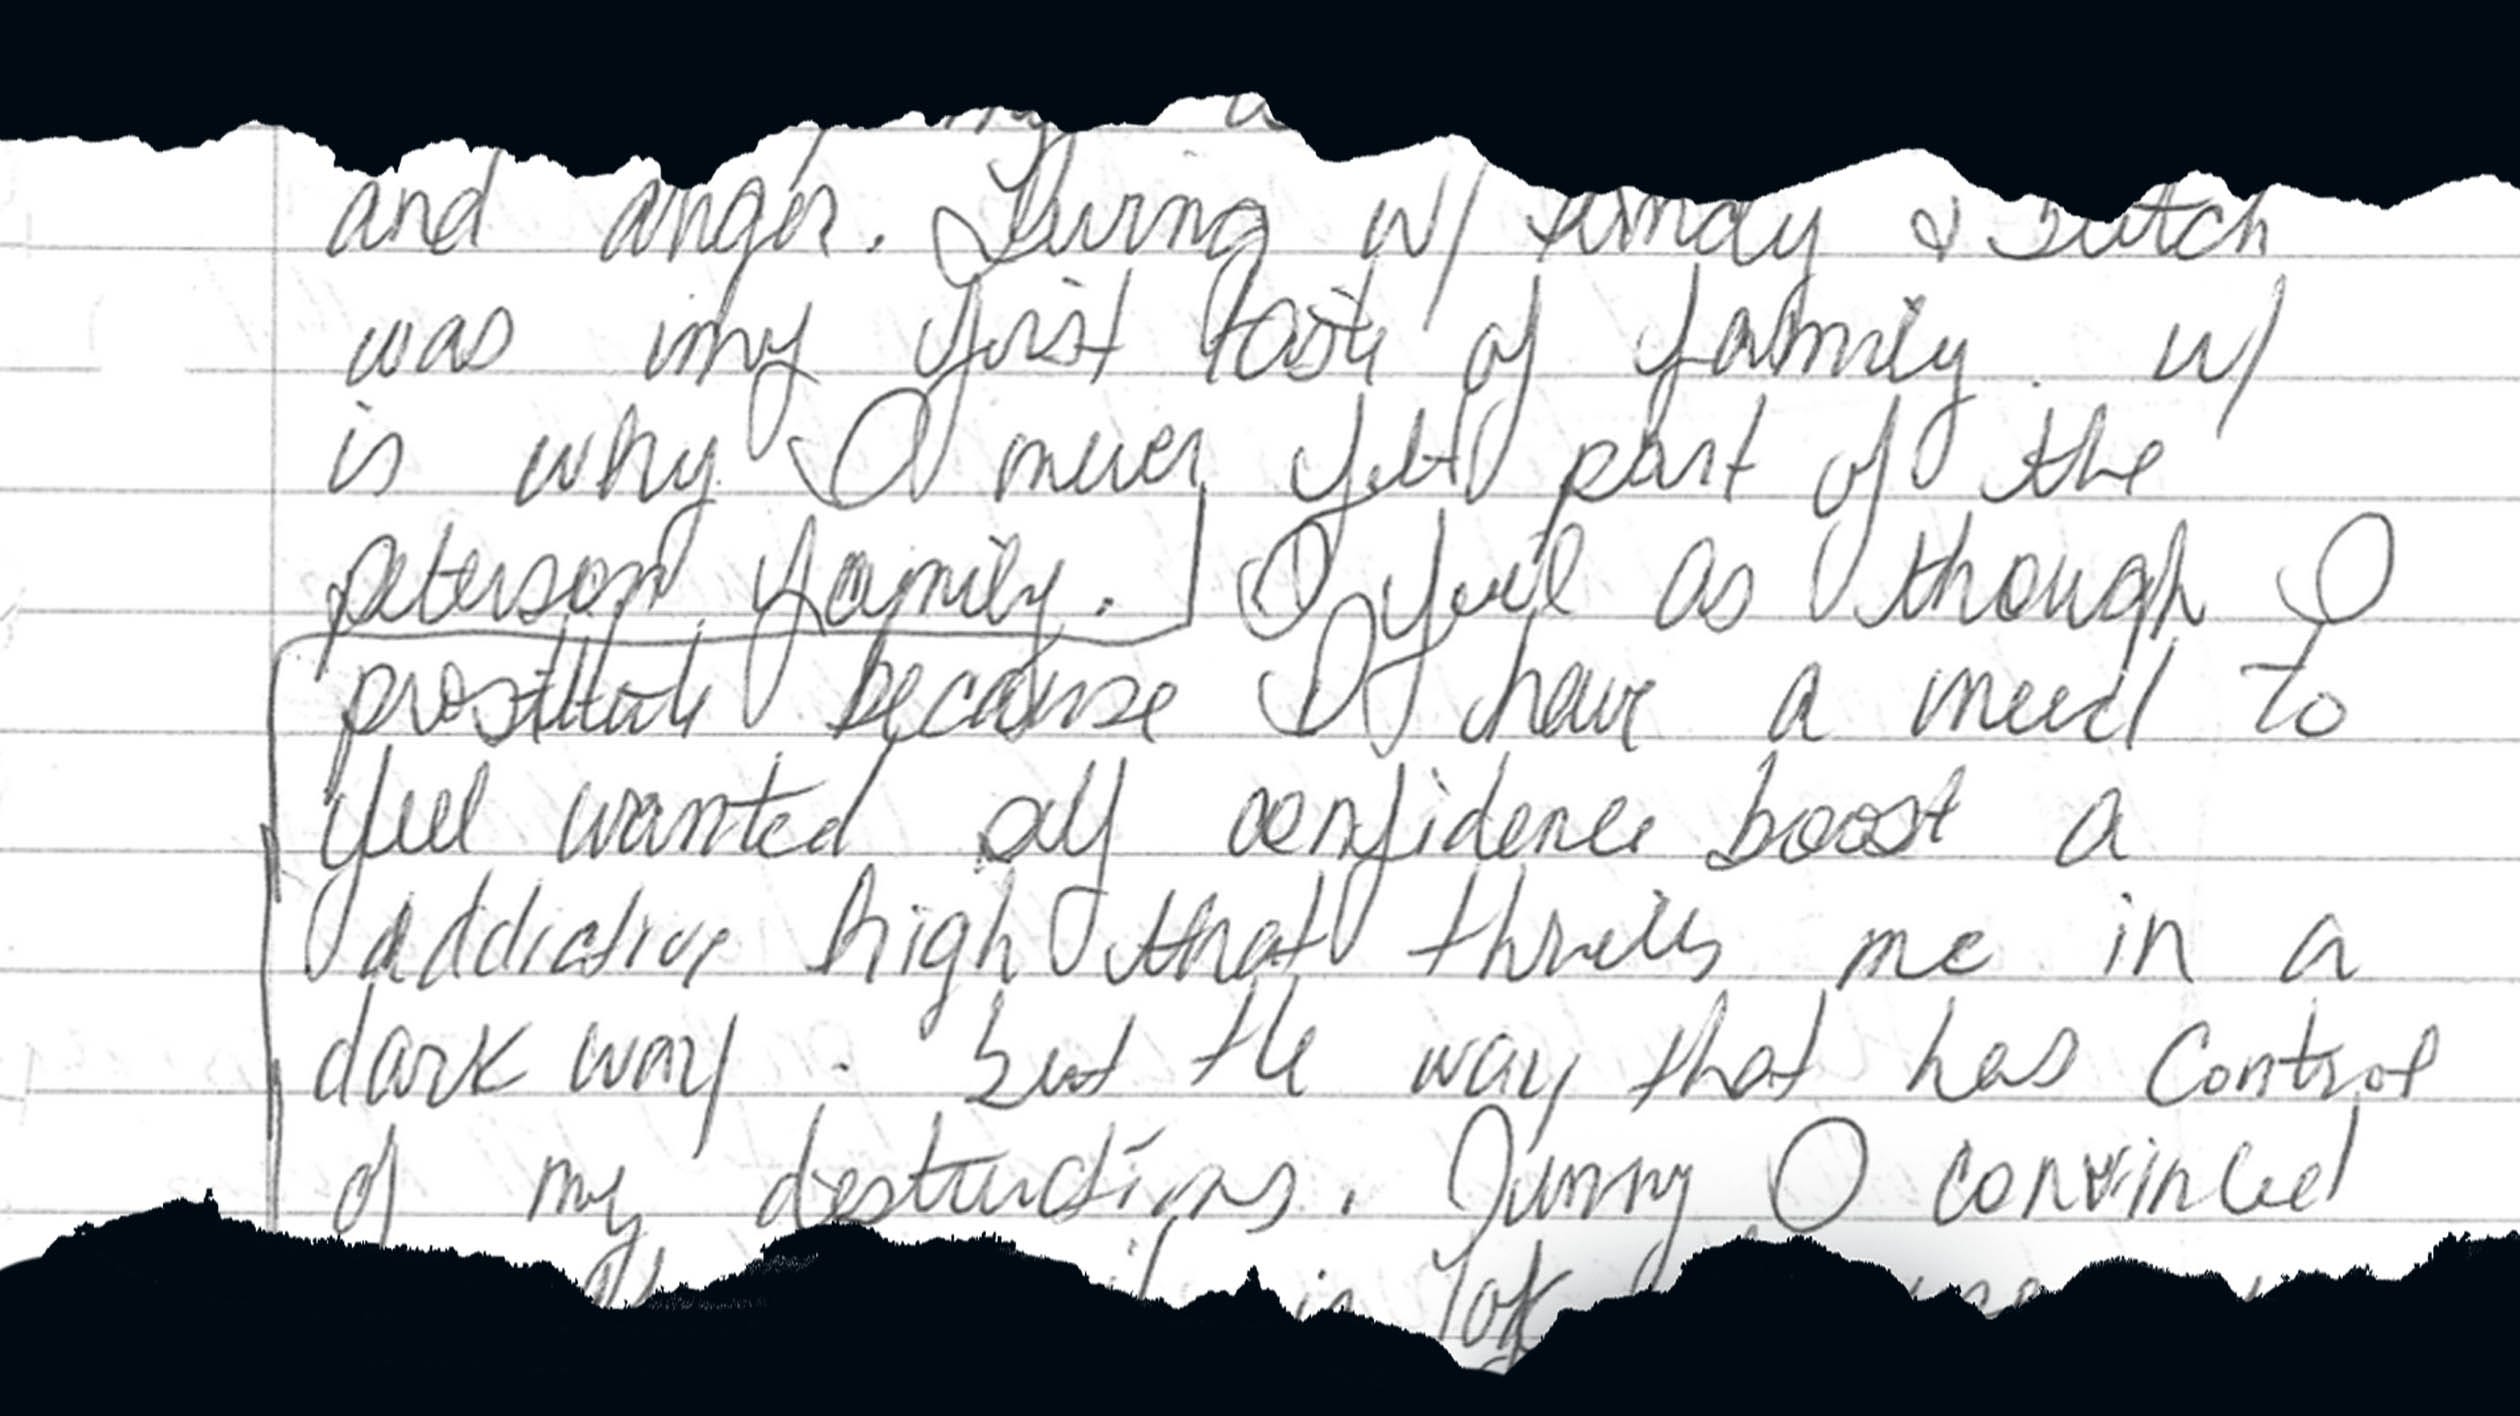 and anger. Living w/ & Butch
was my first taste of family. w/
is why I never felt part of the
peterson family. I feel as though I
prostitute because I have a need to
feel wanted confidence boost a
addictive high that thrills me in a
dark way. But the way that has control
of my destructions. Funny I convinced
in